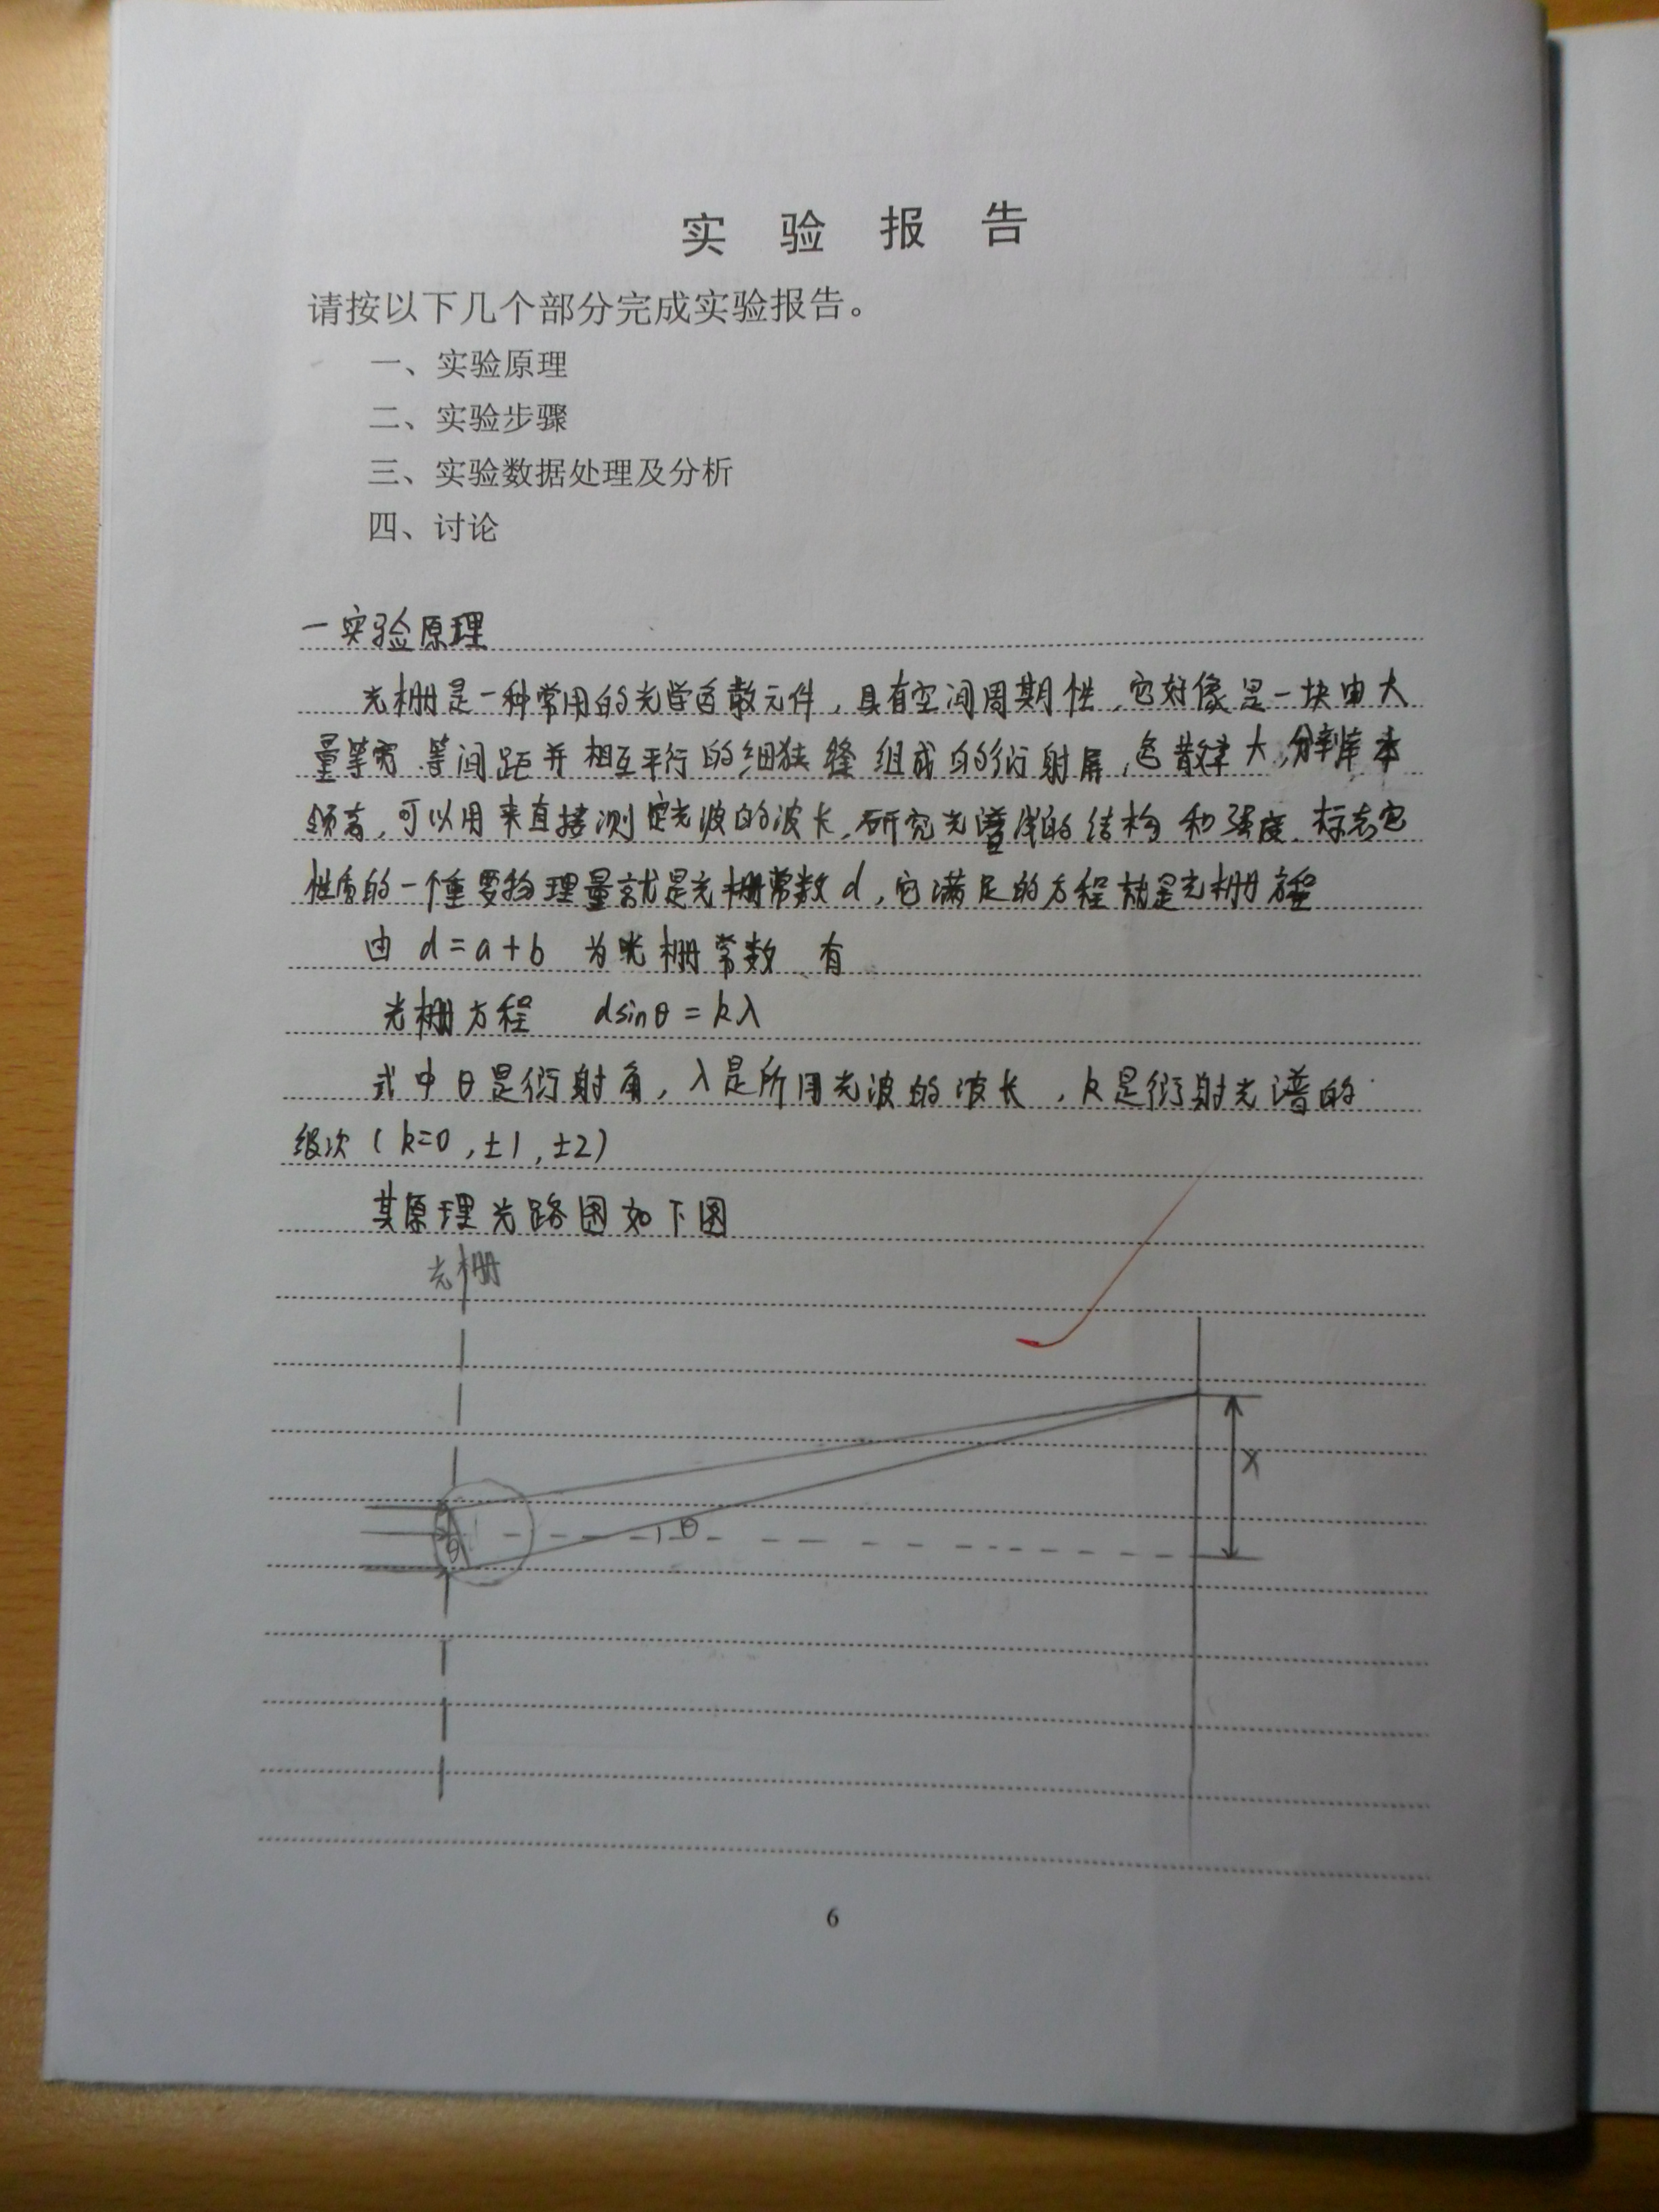 实验报告
请按以下几个部分完成实验报告。
一、实验原理
二、实验步骤
三、实验数据处理及分析
四、讨论
一 实验原理
光栅是一种常用的光学色散元件，具有空间周期性，它好像是一块由大
量等宽、等间距并相互平行的细狭缝组成的衍射屏，色散率大，分辨率本
领高，可以用来直接测定光波的波长，研究光谱线的结构和强度、标志它
性质的一个重要物理量就是光栅常数d，它满足的方程就是光栅方程
由 d=a+b 为光栅常数 有
光栅方程 dsinθ=kλ
式中θ是衍射角，λ是所用光波的波长，k是衍射光谱的
级次（k=0，±1，±2）
其原理光路图如下图
光栅
X
θ
θ
6